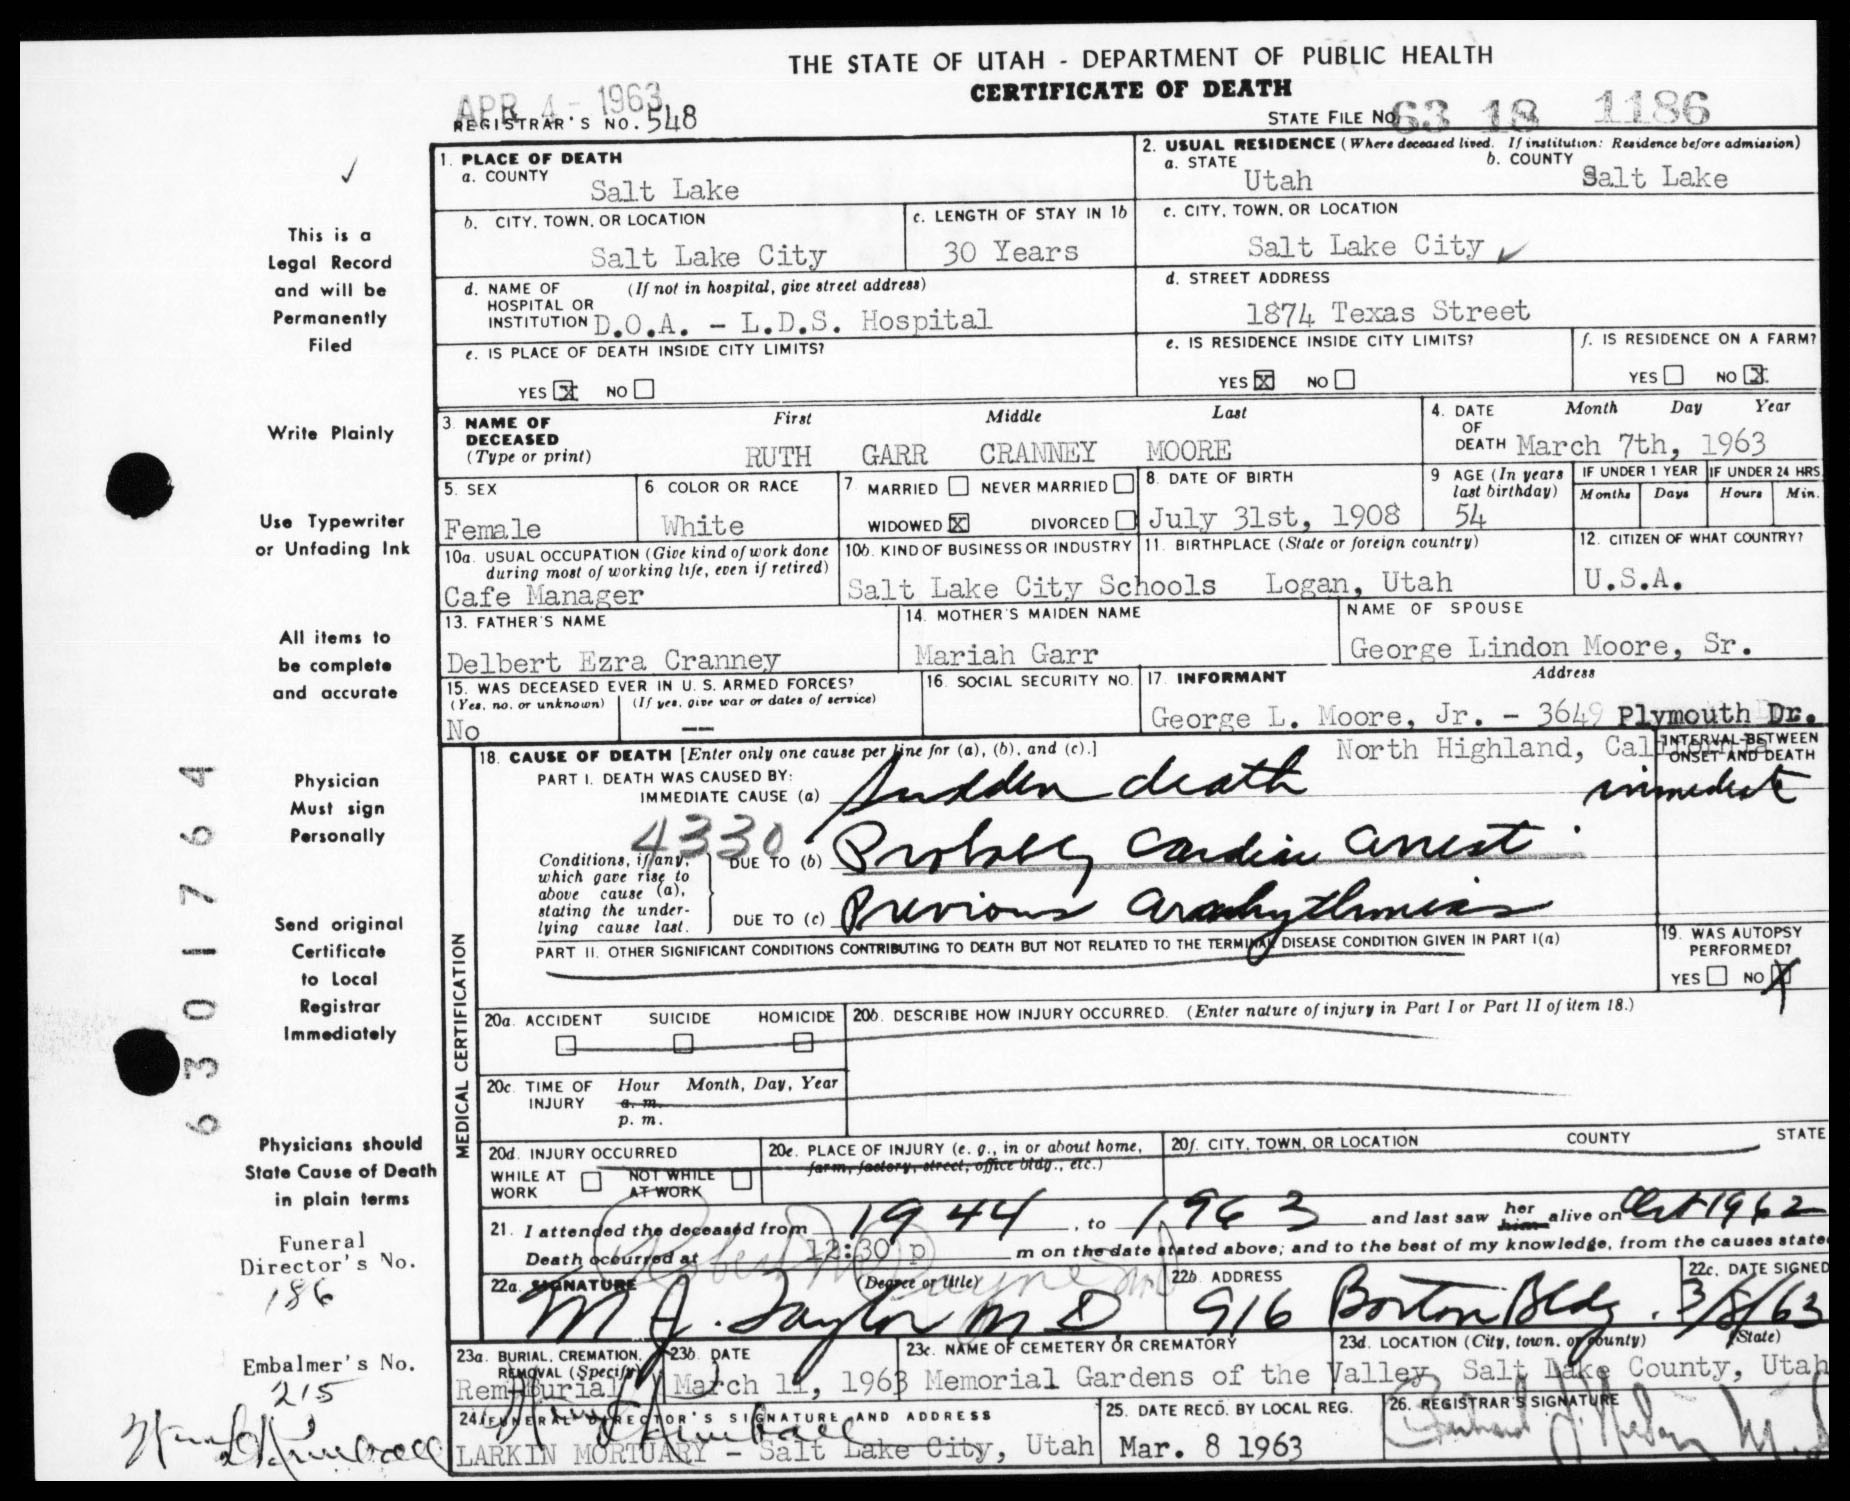 THE STATE OF UTAH - DEPARTMENT OF PUBLIC HEALTH
CERTIFICATE OF DEATH
APR 4 - 1963
REGISTRAR'S NO. 548
STATE FILE NO. 63 18 1186
This is a
Legal Record
and will be
Permanently
Filed
Write Plainly
Use Typewriter
or Unfading Ink
All items to
be complete
and accurate
Physician
Must sign
Personally
Send original
Certificate
to Local
Registrar
Immediately
Physicians should
State Cause of Death
in plain terms
Funeral
Director's No.
186
Embalmer's No.
215
6301764
1. PLACE OF DEATH
a. COUNTY
Salt Lake
2. USUAL RESIDENCE (Where deceased lived. If institution: Residence before admission)
a. STATE
Utah
b. COUNTY
Salt Lake
b. CITY, TOWN, OR LOCATION
Salt Lake City
c. LENGTH OF STAY IN 1b
30 Years
c. CITY, TOWN, OR LOCATION
Salt Lake City
d. NAME OF (If not in hospital, give street address)
HOSPITAL OR
INSTITUTION D.O.A. - L.D.S. Hospital
d. STREET ADDRESS
1874 Texas Street
e. IS PLACE OF DEATH INSIDE CITY LIMITS?
YES X NO
e. IS RESIDENCE INSIDE CITY LIMITS?
YES X NO
f. IS RESIDENCE ON A FARM?
YES NO X
3. NAME OF
DECEASED
(Type or print)
First Middle Last
RUTH GARR CRANNEY MOORE
4. DATE
OF
DEATH
Month Day Year
March 7th, 1963
5. SEX
Female
6. COLOR OR RACE
White
7. MARRIED NEVER MARRIED
WIDOWED X DIVORCED
8. DATE OF BIRTH
July 31st, 1908
9 AGE (In years
last birthday)
54
IF UNDER 1 YEAR
Months Days
IF UNDER 24 HRS.
Hours Min.
10a. USUAL OCCUPATION (Give kind of work done
during most of working life, even if retired)
Cafe Manager
10b. KIND OF BUSINESS OR INDUSTRY
Salt Lake City Schools
11. BIRTHPLACE (State or foreign country)
Logan, Utah
12. CITIZEN OF WHAT COUNTRY?
U.S.A.
13. FATHER'S NAME
Delbert Ezra Cranney
14. MOTHER'S MAIDEN NAME
Mariah Garr
NAME OF SPOUSE
George Lindon Moore, Sr.
15. WAS DECEASED EVER IN U. S. ARMED FORCES?
(Yes, no, or unknown) (If yes, give war or dates of service)
No --
16. SOCIAL SECURITY NO.
17. INFORMANT Address
George L. Moore, Jr. - 3649 Plymouth Dr.
North Highland, California
MEDICAL CERTIFICATION
18. CAUSE OF DEATH [Enter only one cause per line for (a), (b), and (c).]
PART I. DEATH WAS CAUSED BY:
IMMEDIATE CAUSE (a) Sudden death
INTERVAL BETWEEN
ONSET AND DEATH
immediate
4330
Conditions, if any,
which gave rise to
above cause (a),
stating the under-
lying cause last.
DUE TO (b) Probably Cardiac arrest
DUE TO (c) Previous arrhythmias
PART II. OTHER SIGNIFICANT CONDITIONS CONTRIBUTING TO DEATH BUT NOT RELATED TO THE TERMINAL DISEASE CONDITION GIVEN IN PART I(a)
19. WAS AUTOPSY
PERFORMED?
YES NO X
20a. ACCIDENT SUICIDE HOMICIDE
20b. DESCRIBE HOW INJURY OCCURRED. (Enter nature of injury in Part I or Part II of item 18.)
20c. TIME OF
INJURY
Hour Month, Day, Year
a. m.
p. m.
20d. INJURY OCCURRED
WHILE AT
WORK
NOT WHILE
AT WORK
20e. PLACE OF INJURY (e. g., in or about home,
farm, factory, street, office bldg., etc.)
20f. CITY, TOWN, OR LOCATION COUNTY STATE
21. I attended the deceased from 1944, to 1963 and last saw her him alive on Oct 1962
Death occurred at 12:30 p m on the date stated above; and to the best of my knowledge, from the causes state
22a. SIGNATURE (Degree or title)
M J. Taylor M D
22b. ADDRESS
916 Boston Bldg.
22c. DATE SIGNED
3/8/63
23a. BURIAL, CREMATION,
REMOVAL (Specify)
Rem-Burial
23b. DATE
March 11, 1963
23c. NAME OF CEMETERY OR CREMATORY
Memorial Gardens of the Valley
23d. LOCATION (City, town, or county) (State)
Salt Lake County, Utah
24. FUNERAL DIRECTOR'S SIGNATURE AND ADDRESS
LARKIN MORTUARY - Salt Lake City, Utah
25. DATE RECD. BY LOCAL REG.
Mar. 8 1963
26. REGISTRAR'S SIGNATURE